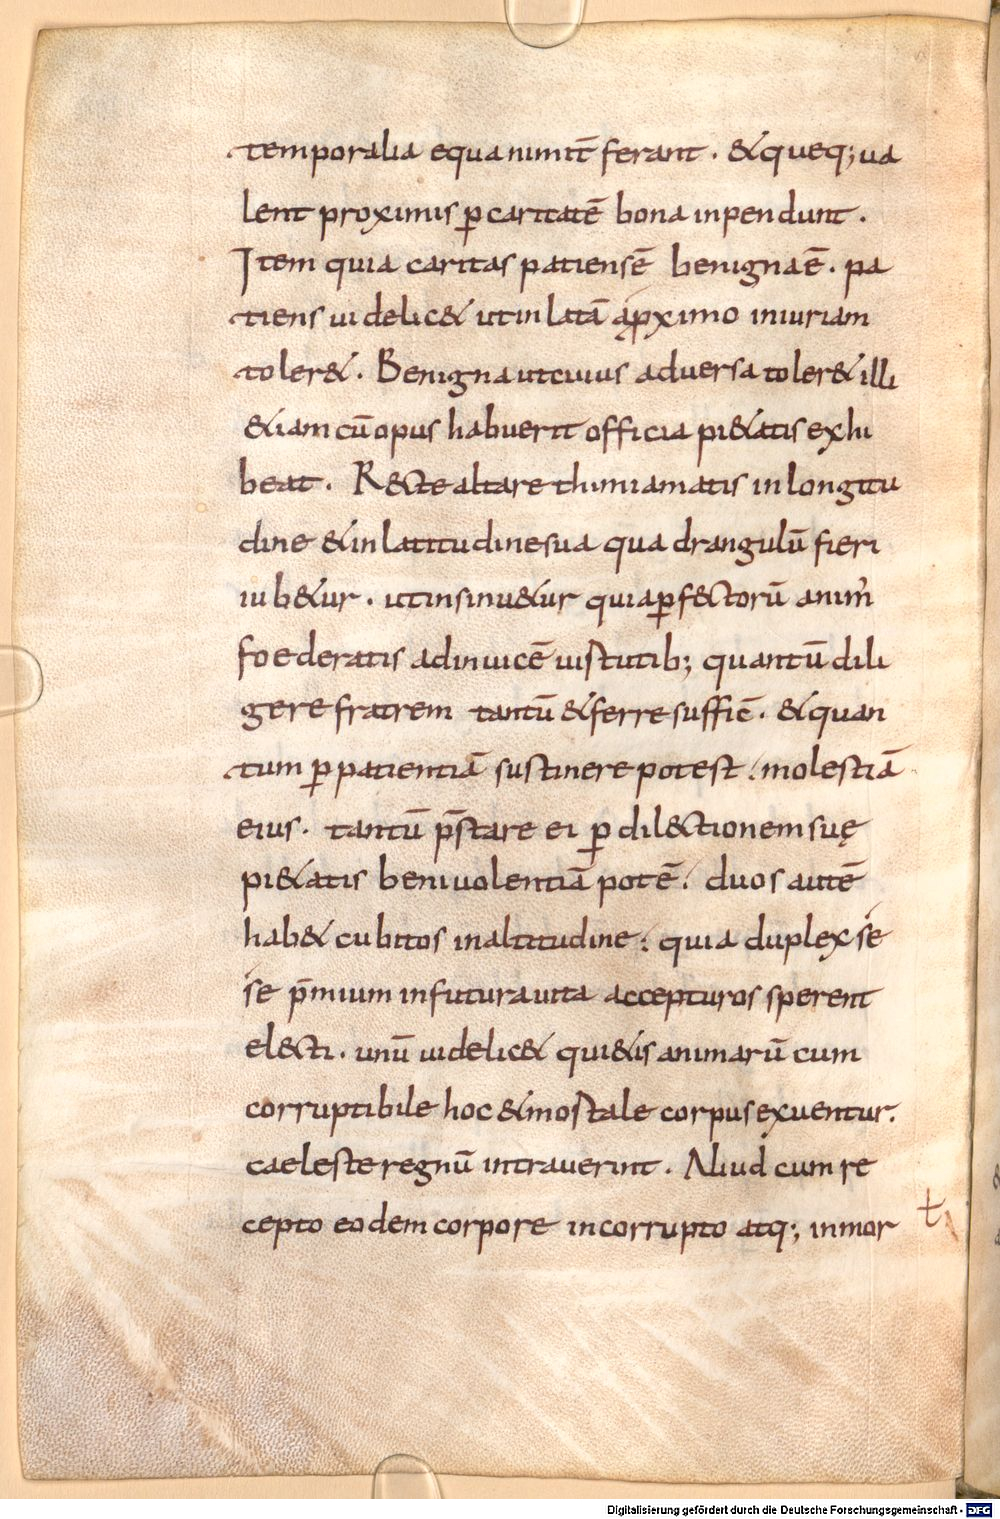 temporalia equanimit̄ ferant . & queq; ua
lent proximis ꝑ caritatē bona inpendunt .
Item quia caritas patiens ē benigna ē . pa
tiens uidelic& ut inlatā a ꝓximo iniuriam
toler& . Benigna ut cuius aduersa toler& illi
&iam cū opus habuerit officia pi&atis exhi
beat . Recte altare thimiamatis in longitu
dine & in latitudine sua quadrangulū fieri
iub&ur . ut insinu&ur quia ꝑfectorū anim̄
foederatis adinuicē uistutib; quantū dili
gere fratrem tantū & ferre suffic̄ . & quan
tum ꝑ patientiā sustinere potest . molestiā
eius . tantū p̄stare ei ꝑ dilectionem suę
pi&atis beniuolentiā potē . duos autē
hab& cubitos in altitudine : quia duplex se
se p̄mium in futura uita accepturos sperent
electi . unū uidelic& qui&is animarū cum
corruptibile hoc & mostale corpus exuentur .
caeleste regnū intrauerint . Aliud cum re
cepto eodem corpore incorrupto atq; inmor
t
Digitalisierung gefördert durch die Deutsche Forschungsgemeinschaft - DFG